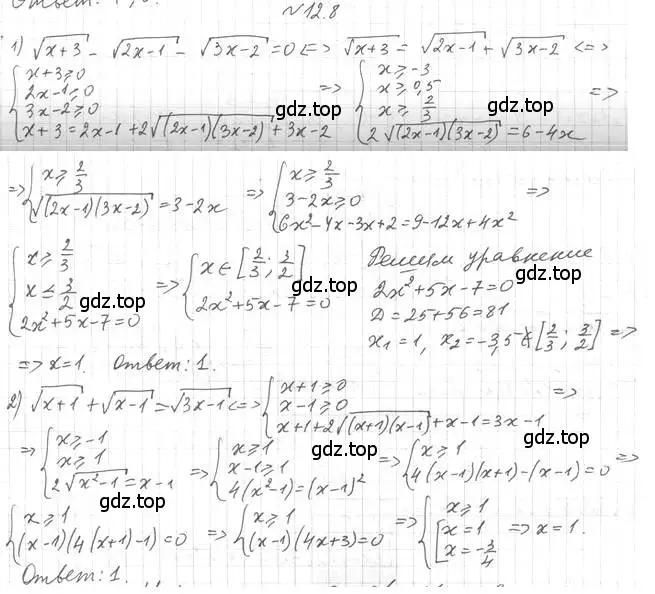 Ответ:
№12.8
1) √(x+3) - √(2x-1) - √(3x-2) = 0 <=> √(x+3) = √(2x-1) + √(3x-2) <=>
{ x+3⩾0
2x-1⩾0
3x-2⩾0
x+3=2x-1+2√((2x-1)(3x-2))+3x-2
=> { x⩾-3
x⩾0,5
x⩾2/3
2√((2x-1)(3x-2)) = 6-4x
=>
gdz.top
gdz.top
=> { x⩾2/3
√((2x-1)(3x-2)) = 3-2x
=> { x⩾2/3
3-2x⩾0
6x²-4x-3x+2=9-12x+4x²
=>
gdz.top
gdz.top
{ x⩾2/3
x⩽3/2
2x²+5x-7=0
=> { x∈[2/3; 3/2]
2x²+5x-7=0
Решим уравнение
2x²+5x-7=0
D=25+56=81
x₁=1, x₂=-3,5∉[2/3; 3/2] =>
gdz.top
gdz.top
=> x=1. Ответ: 1.
2) √(x+1) + √(x-1) = √(3x-1) <=> { x+1⩾0
x-1⩾0
x+1+2√((x+1)(x-1))+x-1=3x-1
=>
gdz.top
gdz.top
=> { x⩾-1
x⩾1
2√(x²-1) = x-1
=> { x⩾1
x-1⩾1
4(x²-1)=(x-1)²
=> { x⩾1
4(x-1)(x+1)-(x-1)=0
=>
gdz.top
gdz.top
{ x⩾1
(x-1)(4(x+1)-1)=0
=> { x⩾1
(x-1)(4x+3)=0
=> { x⩾1
[ x=1
x=-3/4
=> x=1.
gdz.top
gdz.top
Ответ: 1.